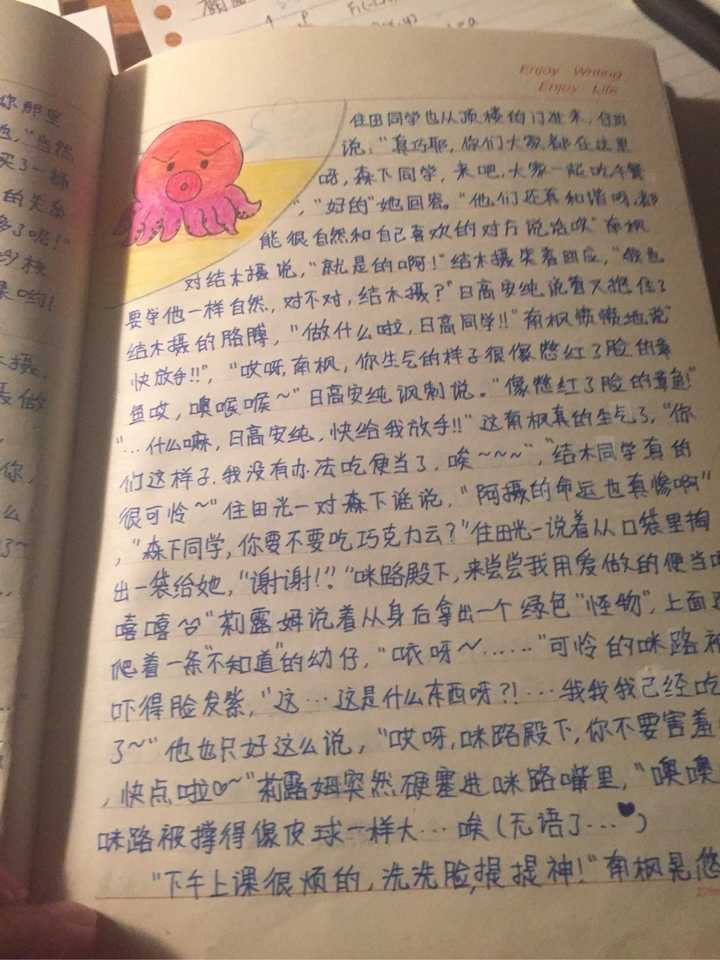 Enjoy Writing
Enjoy Life
住田同学也从顶楼的门进来,住田
说:"真巧耶,你们大家都在这里
呀,森下同学,来吧,大家一起吃午餐
","好的"她回答。"他们还真和谐呀,都
能很自然和自己喜欢的对方说话欸"南枫
对结木摄说,"就是的啊!"结木摄笑着回应,"我也
要学他一样自然,对不对,结木摄?"日高安纯说着又抱住了
结木摄的胳膊,"做什么啦,日高同学!!"南枫愤愤地说"
快放手!!","哎呀,南枫,你生气的样子很像憋红了脸的章
鱼哎,噢喉喉~"日高安纯讽刺说。"像憋红了脸的章鱼!"
"…什么嘛,日高安纯,快给我放手!!"这南枫真的生气了,"你
们这样子,我没有办法吃便当了,唉~~~","结木同学真的
很可怜~"住田光一对森下谣说,"阿摄的命运也真惨啊"
,"森下同学,你要不要吃巧克力云?"住田光一说着从口袋里掏
出一袋给她,"谢谢!","咪路殿下,来尝尝我用爱做的便当吧
嘻嘻"莉露姆说着从身后拿出一个绿色"怪物",上面还
爬着一条"不知道"的幼仔,"哎呀~……"可怜的咪路被
吓得脸发紫,"这…这是什么东西呀?!…我我我已经吃
了~"他也只好这么说,"哎呀,咪路殿下,你不要害羞
,快点啦♡~"莉露姆突然硬塞进咪路嘴里,"噢噢
咪路被撑得像皮球一样大…唉(无语了…♥)
"下午上课很烦的,洗洗脸,提提神!"南枫晃悠